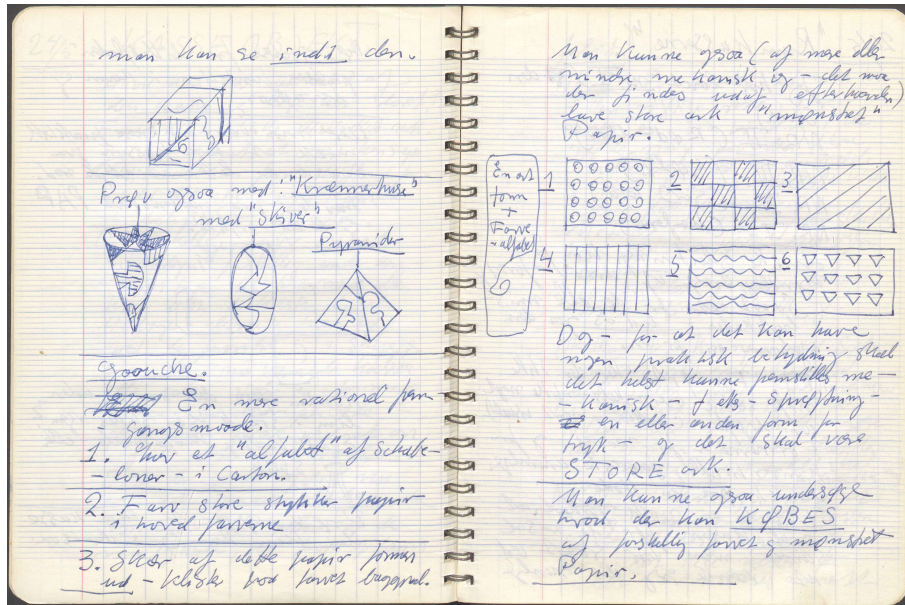 24/5
man kan se indi den.
Prøv ogsaa med: "Kræmmerhuse"
med "Skiver"
Pyramider
Goouche.
En mere rational frem-
- gangsmaade.
1. Lav et "alfabet" af Schabe-
- loner - i Carton.
2. Farv store stykker papir
i hovedfarverne
3. Skær af dette papir formen
ud - klistr paa farvet baggrund.
Man kunne ogsaa (af mere eller
mindre mekanisk - det maa
der findes ud af efterhaanden)
lave store ark "mønstret"
Papir.
En art
form
+
Farve
- alfabet
1 2 3
4 5 6
Dog - for at det kan have
nogen praktisk betydning skal
det helst kunne fremstilles me-
- kanisk - f eks - Sprøjtning -
en eller anden form for
tryk - og det skal være
STORE ark.
Man kunne ogsaa undersøge
hvad der kan KØBES
af forskellig farvet og mønstret
Papir.